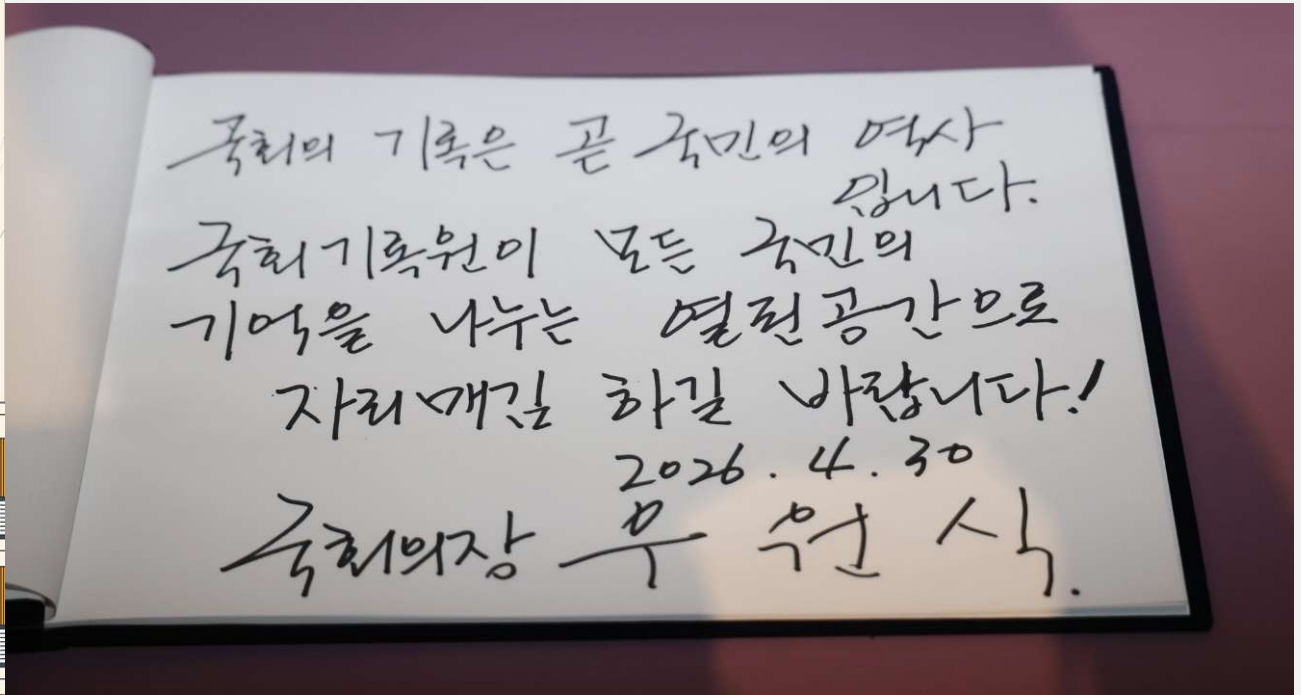 국회의 기록은 곧 국민의 역사
입니다.
국회기록원이 모든 국민의
기억을 나누는 열린공간으로
자리매김 하길 바랍니다!
2026. 4. 30
국회의장 우 원 식.